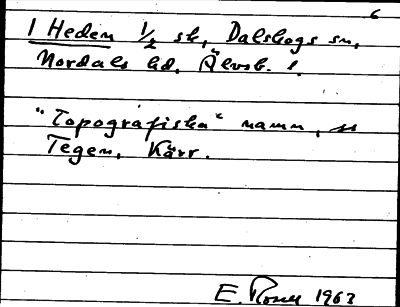 6
1 Heden 1/2 sk, Dalskogs sn,
Nordals hd. Älvsb. l.
"Topografiska" namn, se
Tegen, Kärr.
E. Rosell 1963